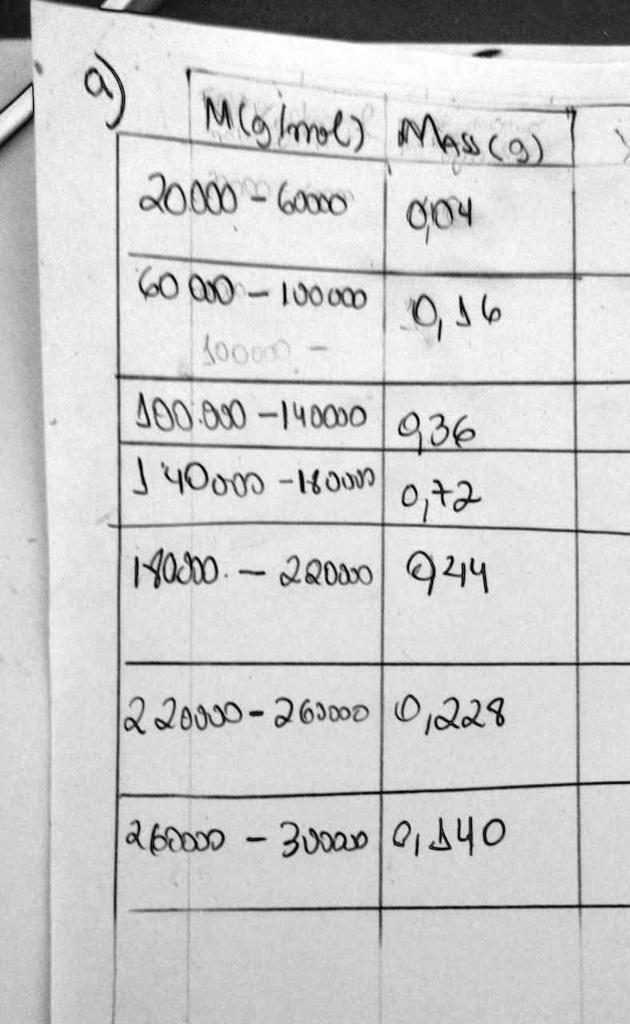 a)
M(g/mol) Mass(g)
20000 - 60000 0,04
60000 - 100000 0,16
100000 -
100.000 - 140000 0,36
140000 - 180000 0,72
180000. - 220000 0,44
220000 - 260000 0,228
260000 - 300000 0,140